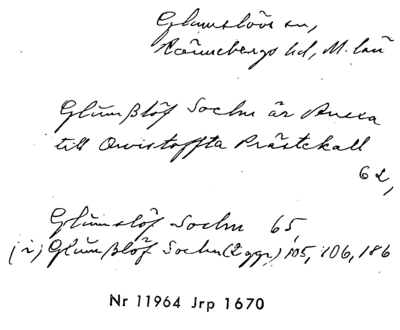 Glumslövs sn,
Rönnebergs hd, M. län
Glumßlöf Sochn är Annexa
till Qwistoffta Prästekall
62,
Glumslöf Sochn 65,
(i) Glumßlöf Sochn (2 ggr) 105, 106, 186
Nr 11964 Jrp 1670